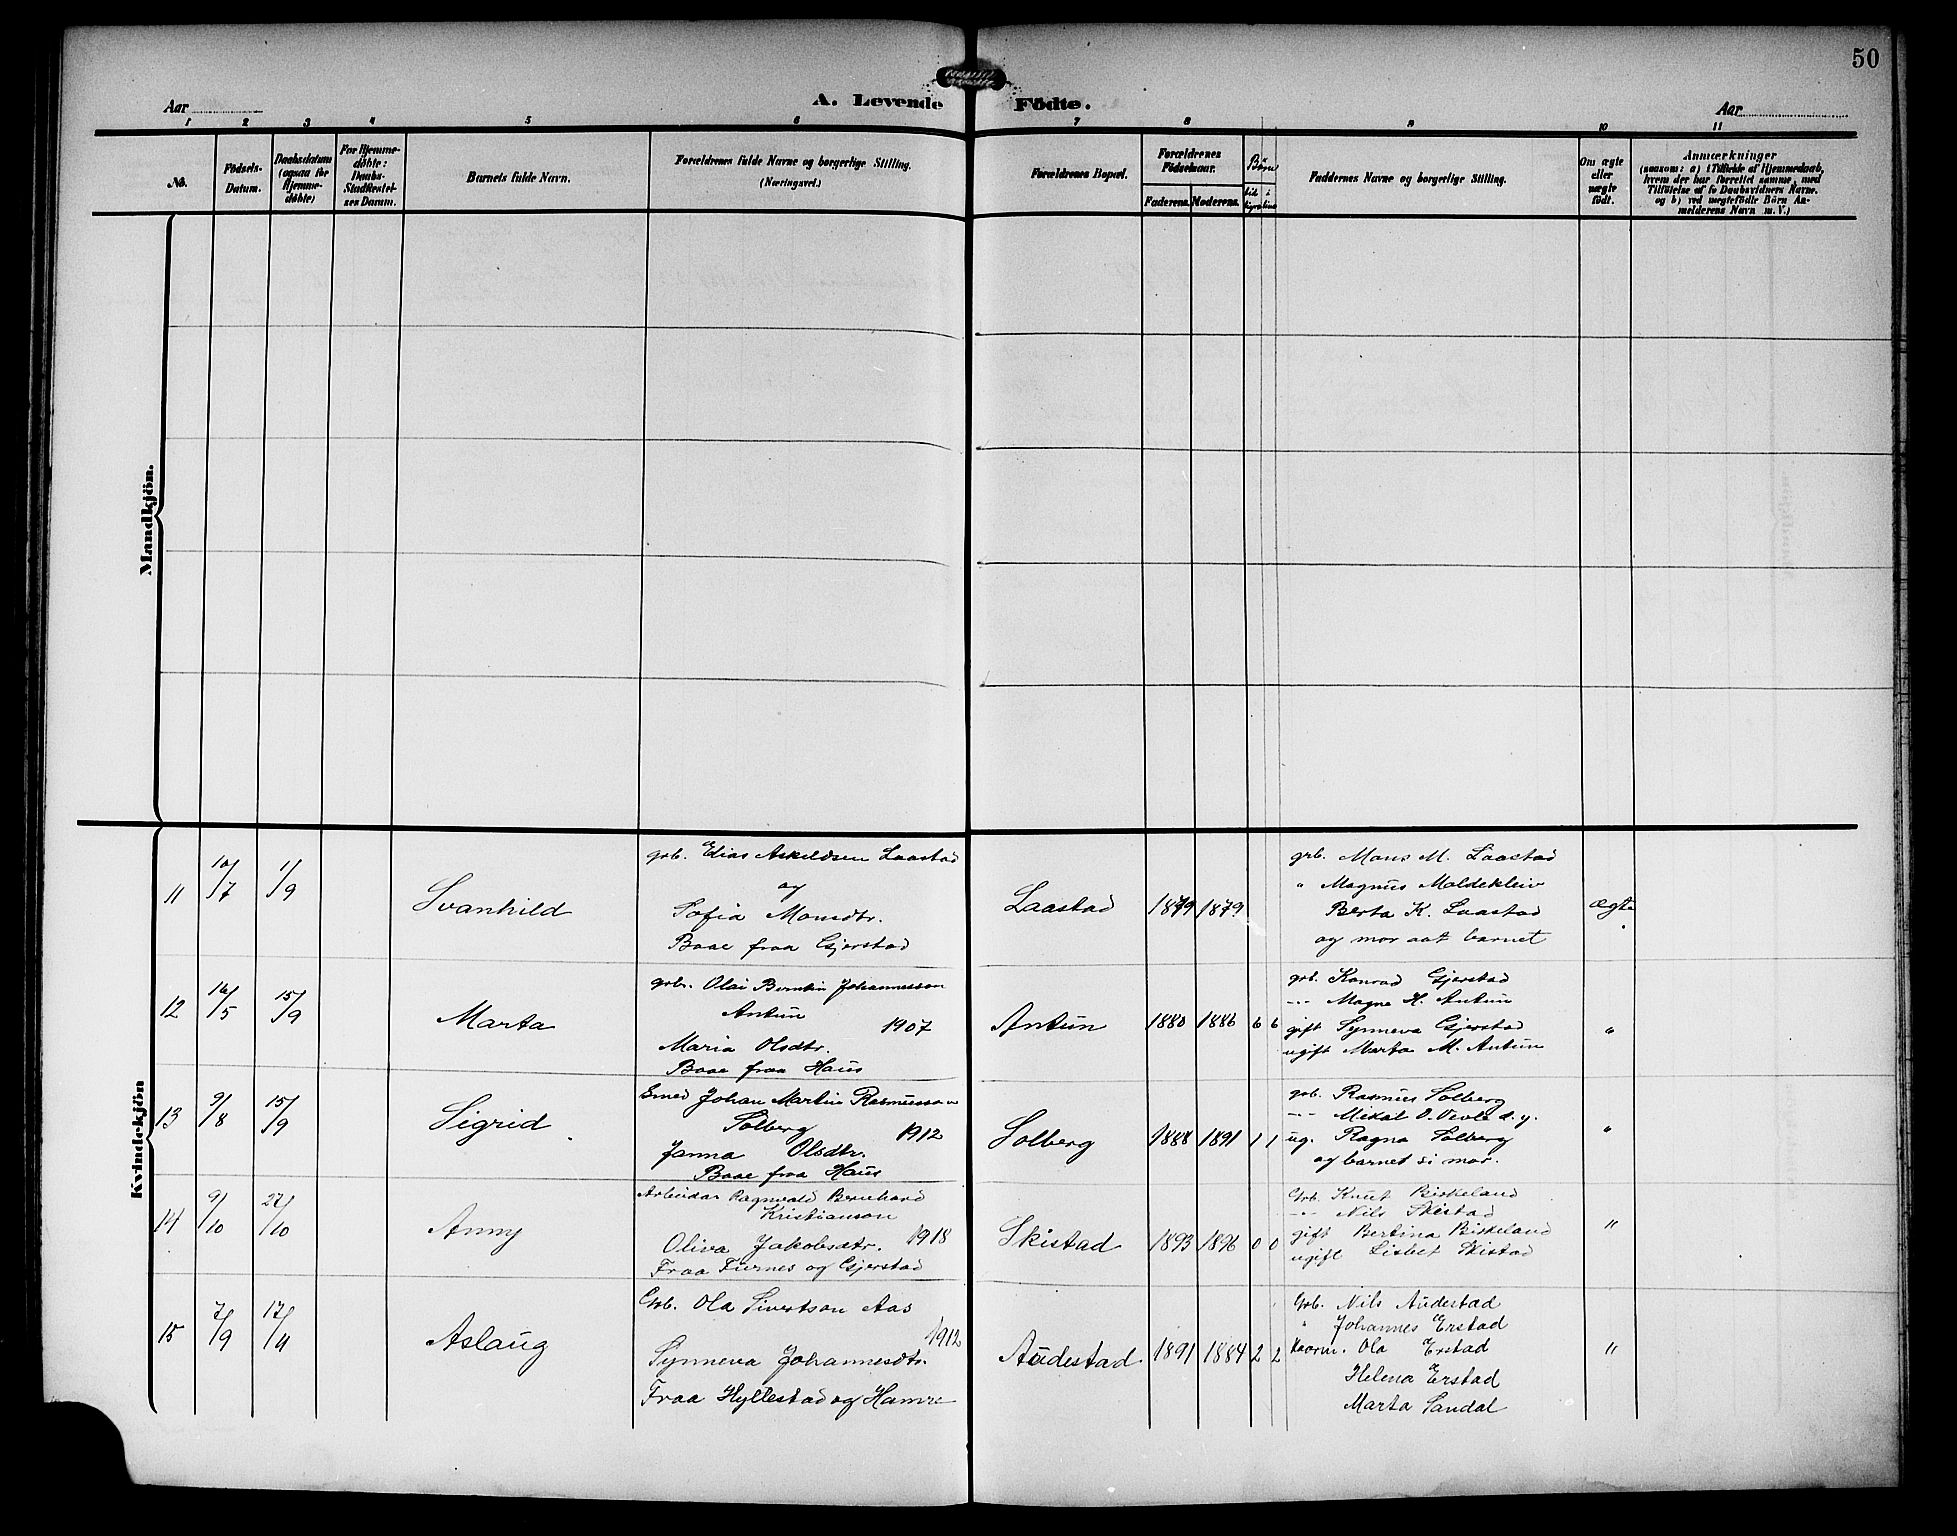 50
Aar
A. Levende Födte.
Aar
1 2 3 4 5 6 7 8 9 10 11
No.
Födsels-
Datum.
Daabsdatum
(ogsaa for
Hjemme-
döbte)
For Hjemme-
döbte:
Daabs-
Stadfæstel-
ses Datum.
Barnets fulde Navn.
Forældrenes fulde Navne og borgerlige Stilling.
(Næringsvei.)
Forældrenes Bopæl.
Forældrenes
Födselsaar.
Faderens. Moderens.
Börn
Faddernes Navne og borgerlige Stilling.
Om ægte
eller
uægte
födt.
Anmærkninger
(saasom: a) i Tilfælde af Hjemmedaab,
hvem der har forrettet samme, med
Tilföielse af to Daabsvidners Navne.
og b) ved uægtefödte Börn An-
melderens Navn m. V.)
Mandkjön.
Kvindekjön
11
10/7
1/9
Svanhild
grb. Elias Askeldsen Laastad
og
Sofia Monsdtr.
Baae fraa Gjerstad
Laastad
1879 1879
grb. Mons M. Laastad
" Magnus Moldekleiv
Berta K. Laastad
og mor aat barnet
ægte
12
16/5
15/9
Marta
grbr. Olai Berntin Johannesson
Antun
1907
Maria Olsdtr.
Baae fraa Haus
Antun
1880 1886 6 6
grb. Konrad Gjerstad
--- Magne H. Antun
gift Synneva Gjerstad
ugift Marta M. Antun
"
13
9/8
15/9
Sigrid
Smed Johan Martin Rasmusson
Solberg
1912
Janna Olsdtr.
Baae fraa Haus
Solberg
1888 1891 1 1
grb. Rasmus Solberg
--- Mikal O. Vevle d.y.
ug. Ragna Solberg
og barnet si mor.
"
14
9/10
27/10
Anny
Arbeidar Ragnvald Bernhard
Kristianson
1918
Oliva Jakobsdtr.
Fraa Furnes og Gjerstad
Skistad
1893 1896 0 0
Grb. Knut Birkeland
--- Nils Skistad
gift Bertina Birkeland
ugift Lisbet Skistad
"
15
7/9
17/11
Aslaug
Grb. Ola Sivertson Aas
1912
Synneva Johannesdtr.
Fraa Hyllestad og Hamre
Audestad
1891 1884 2 2
Grb. Nils Audestad
" Johannes Erstad
Kaarm. Ola Erstad
Helena Erstad
Marta Sandal
"